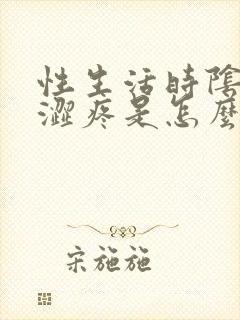 性生活時陰
澀疼是怎麼
宋施施